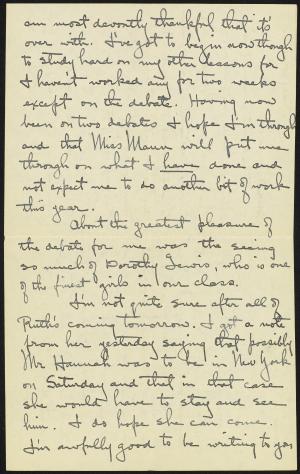 am most devoutly thankful that it's
over with. I've got to begin now though
to study hard on my other lessons for
I haven't worked any for two weeks
except on the debate. Having now
been on two debates I hope I'm through
and that Miss Mann will put me
through on what I have done and
not expect me to do another bit of work
this year.
About the greatest pleasure of
the debate for me was the seeing
so much of Dorothy Lewis, who is one
of the finest girls in our class.
I'm not quite sure after all of
Ruth's coming tomorrow. I got a note
from her yesterday saying that possibly
Mr Hannah was to be in New York
on Saturday and that in that case
she would have to stay and see
him. I do hope she can come.
I'm awfully good to be writing to you